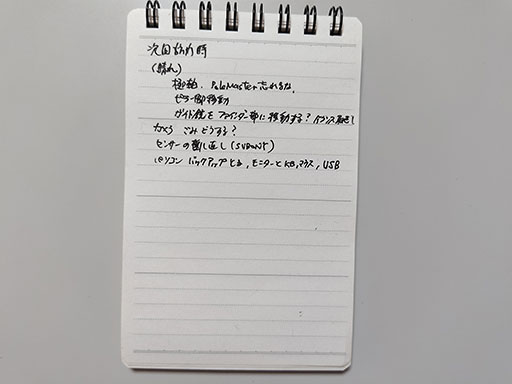 次回訪れ時
(晴れ)
極軸、PoleMaster忘れるな。
ガイド鏡をファインダー部に移動する? バランス
カメラ ごみどうする?
センサーの 直し (SVBONY)
パソコン バックアップとる, モニターとKB,マウス, USB